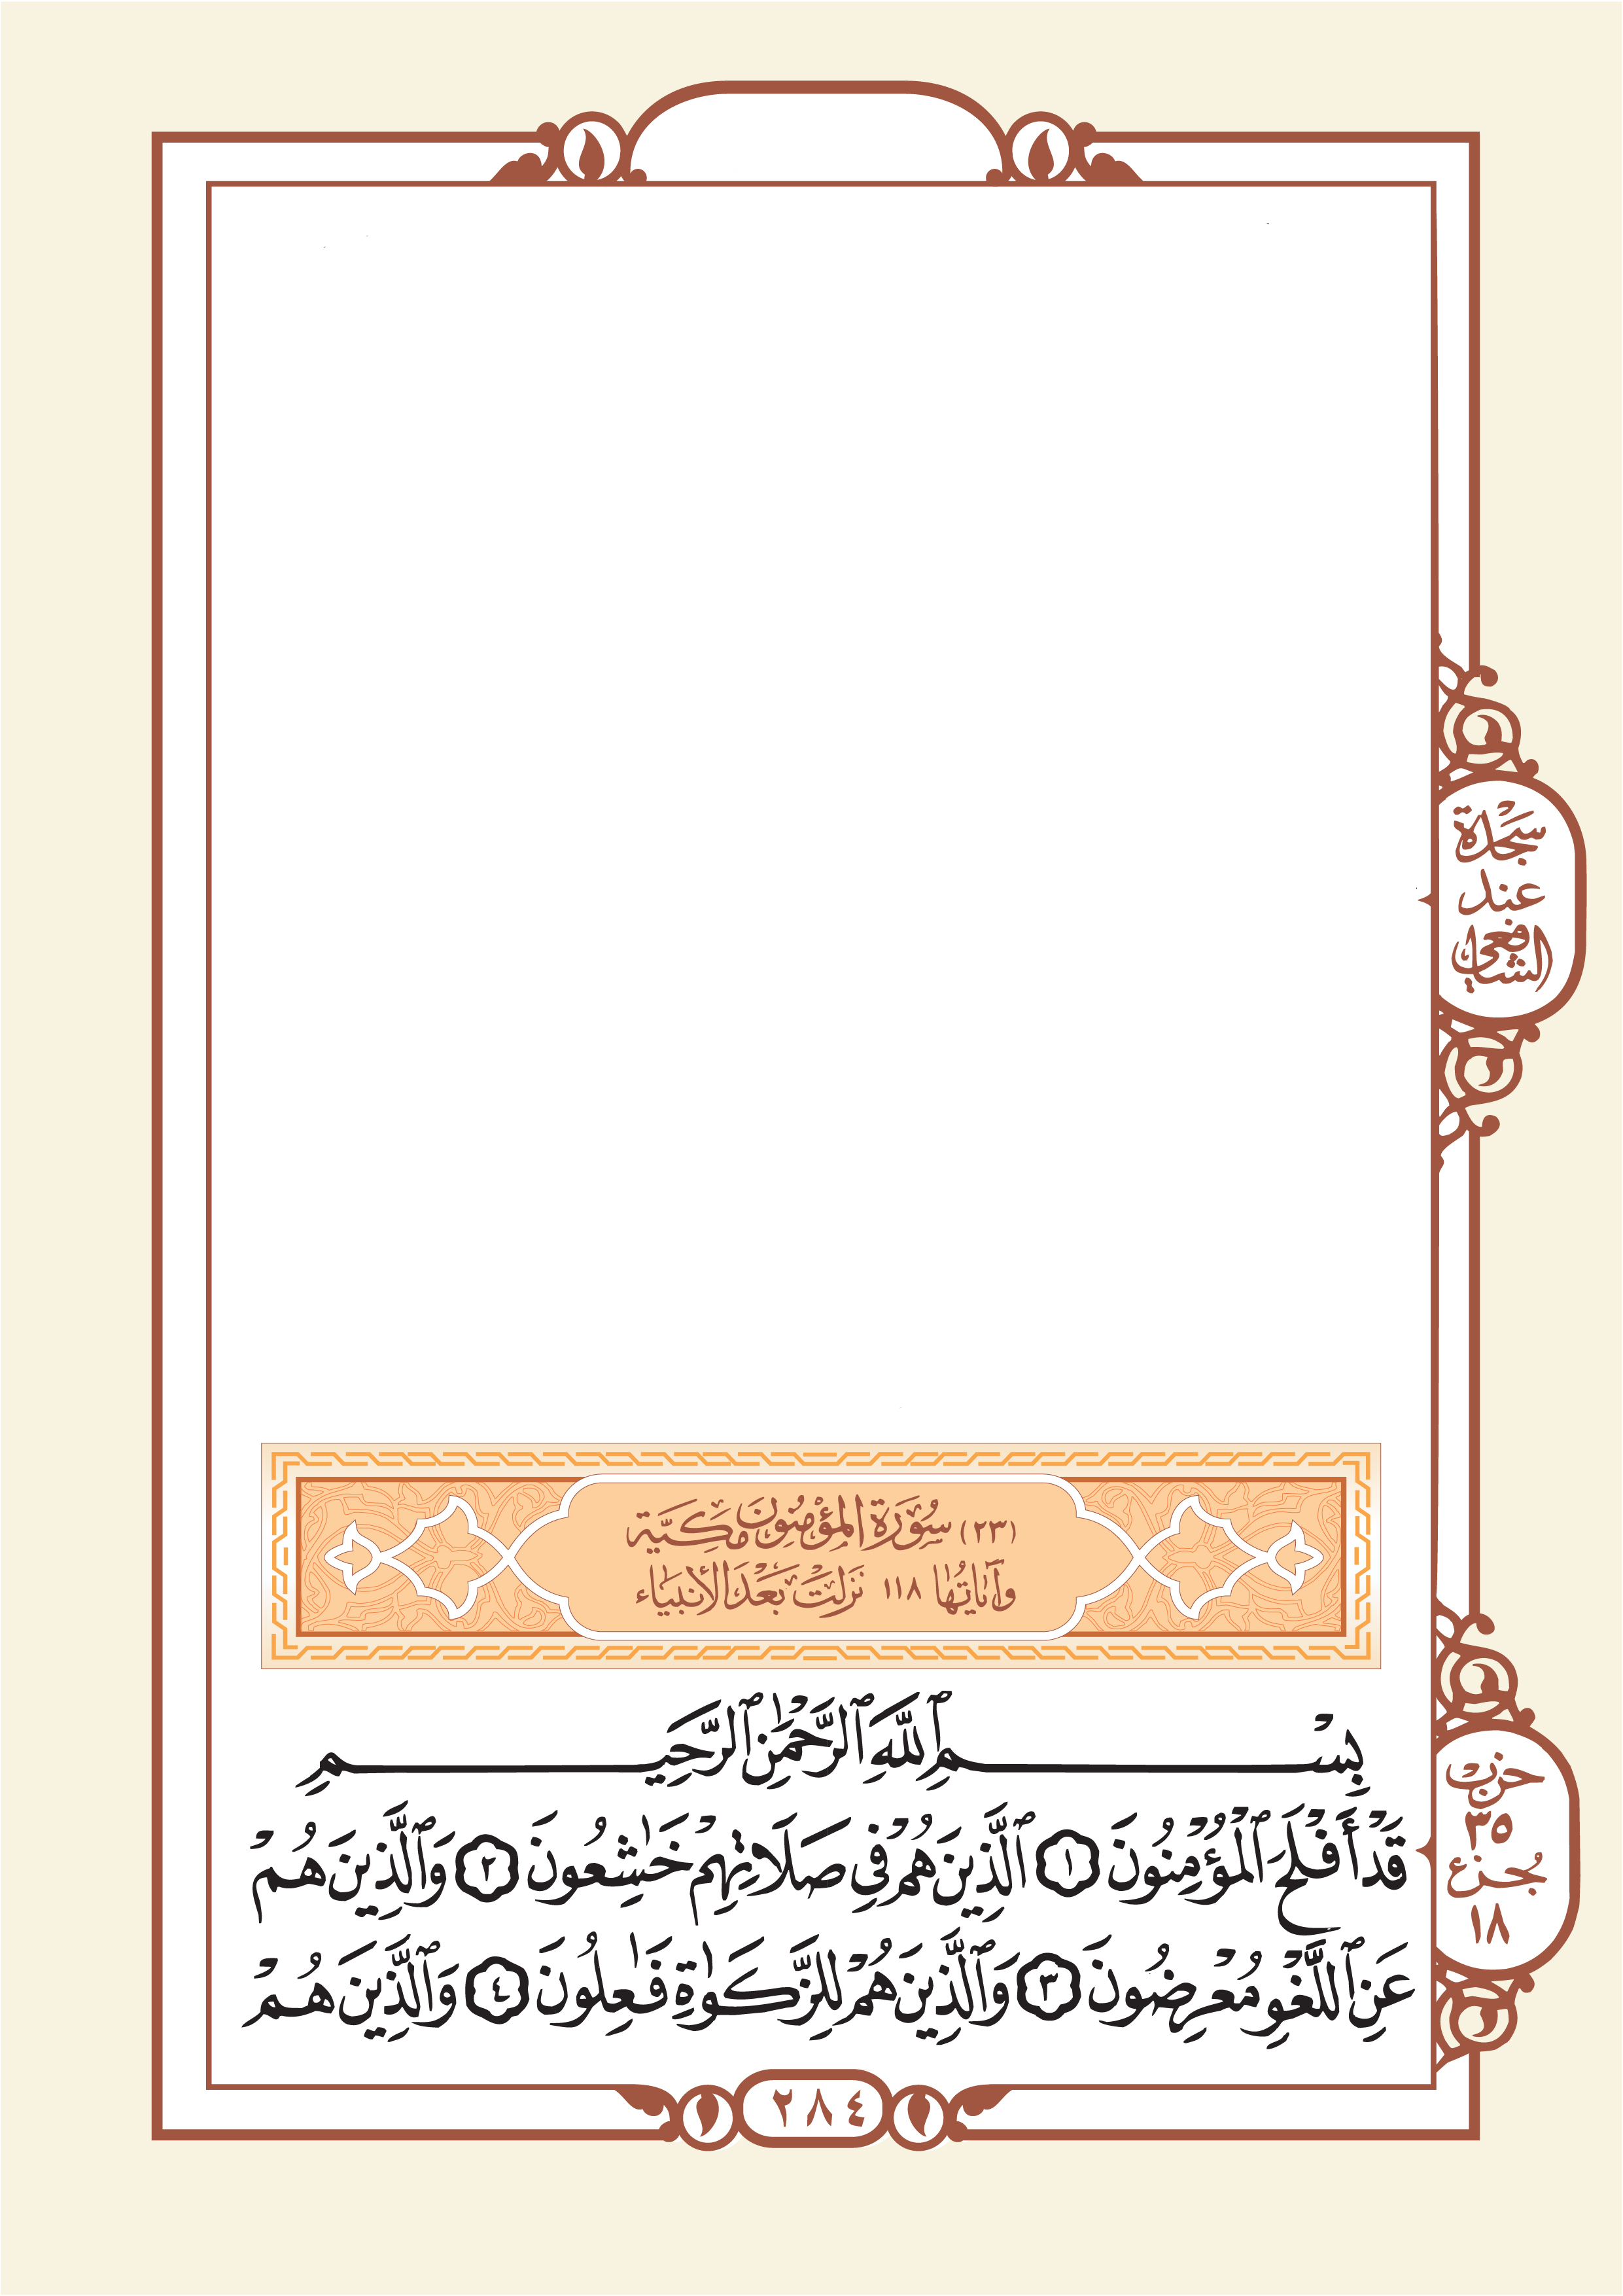 سَجْدَة
عند
الشافعي
(٢٣) سُوْرَة المؤْمِنُون مَكِيَّة
وآيَاتُهَا ١١٨ نَزَلَتْ بَعْدَ الأنبيَاء
بِسْمِ ٱللَّهِ ٱلرَّحْمَٰنِ ٱلرَّحِيمِ
قَدْ أَفْلَحَ ٱلْمُؤْمِنُونَ ١ ٱلَّذِينَ هُمْ فِي صَلَاتِهِمْ خَٰشِعُونَ ٢ وَٱلَّذِينَ هُمْ
عَنِ ٱللَّغْوِ مُعْرِضُونَ ٣ وَٱلَّذِينَ هُمْ لِلزَّكَوٰةِ فَٰعِلُونَ ٤ وَٱلَّذِينَ هُمْ
حزب
٣٥
جُزء
١٨
٢٨٤